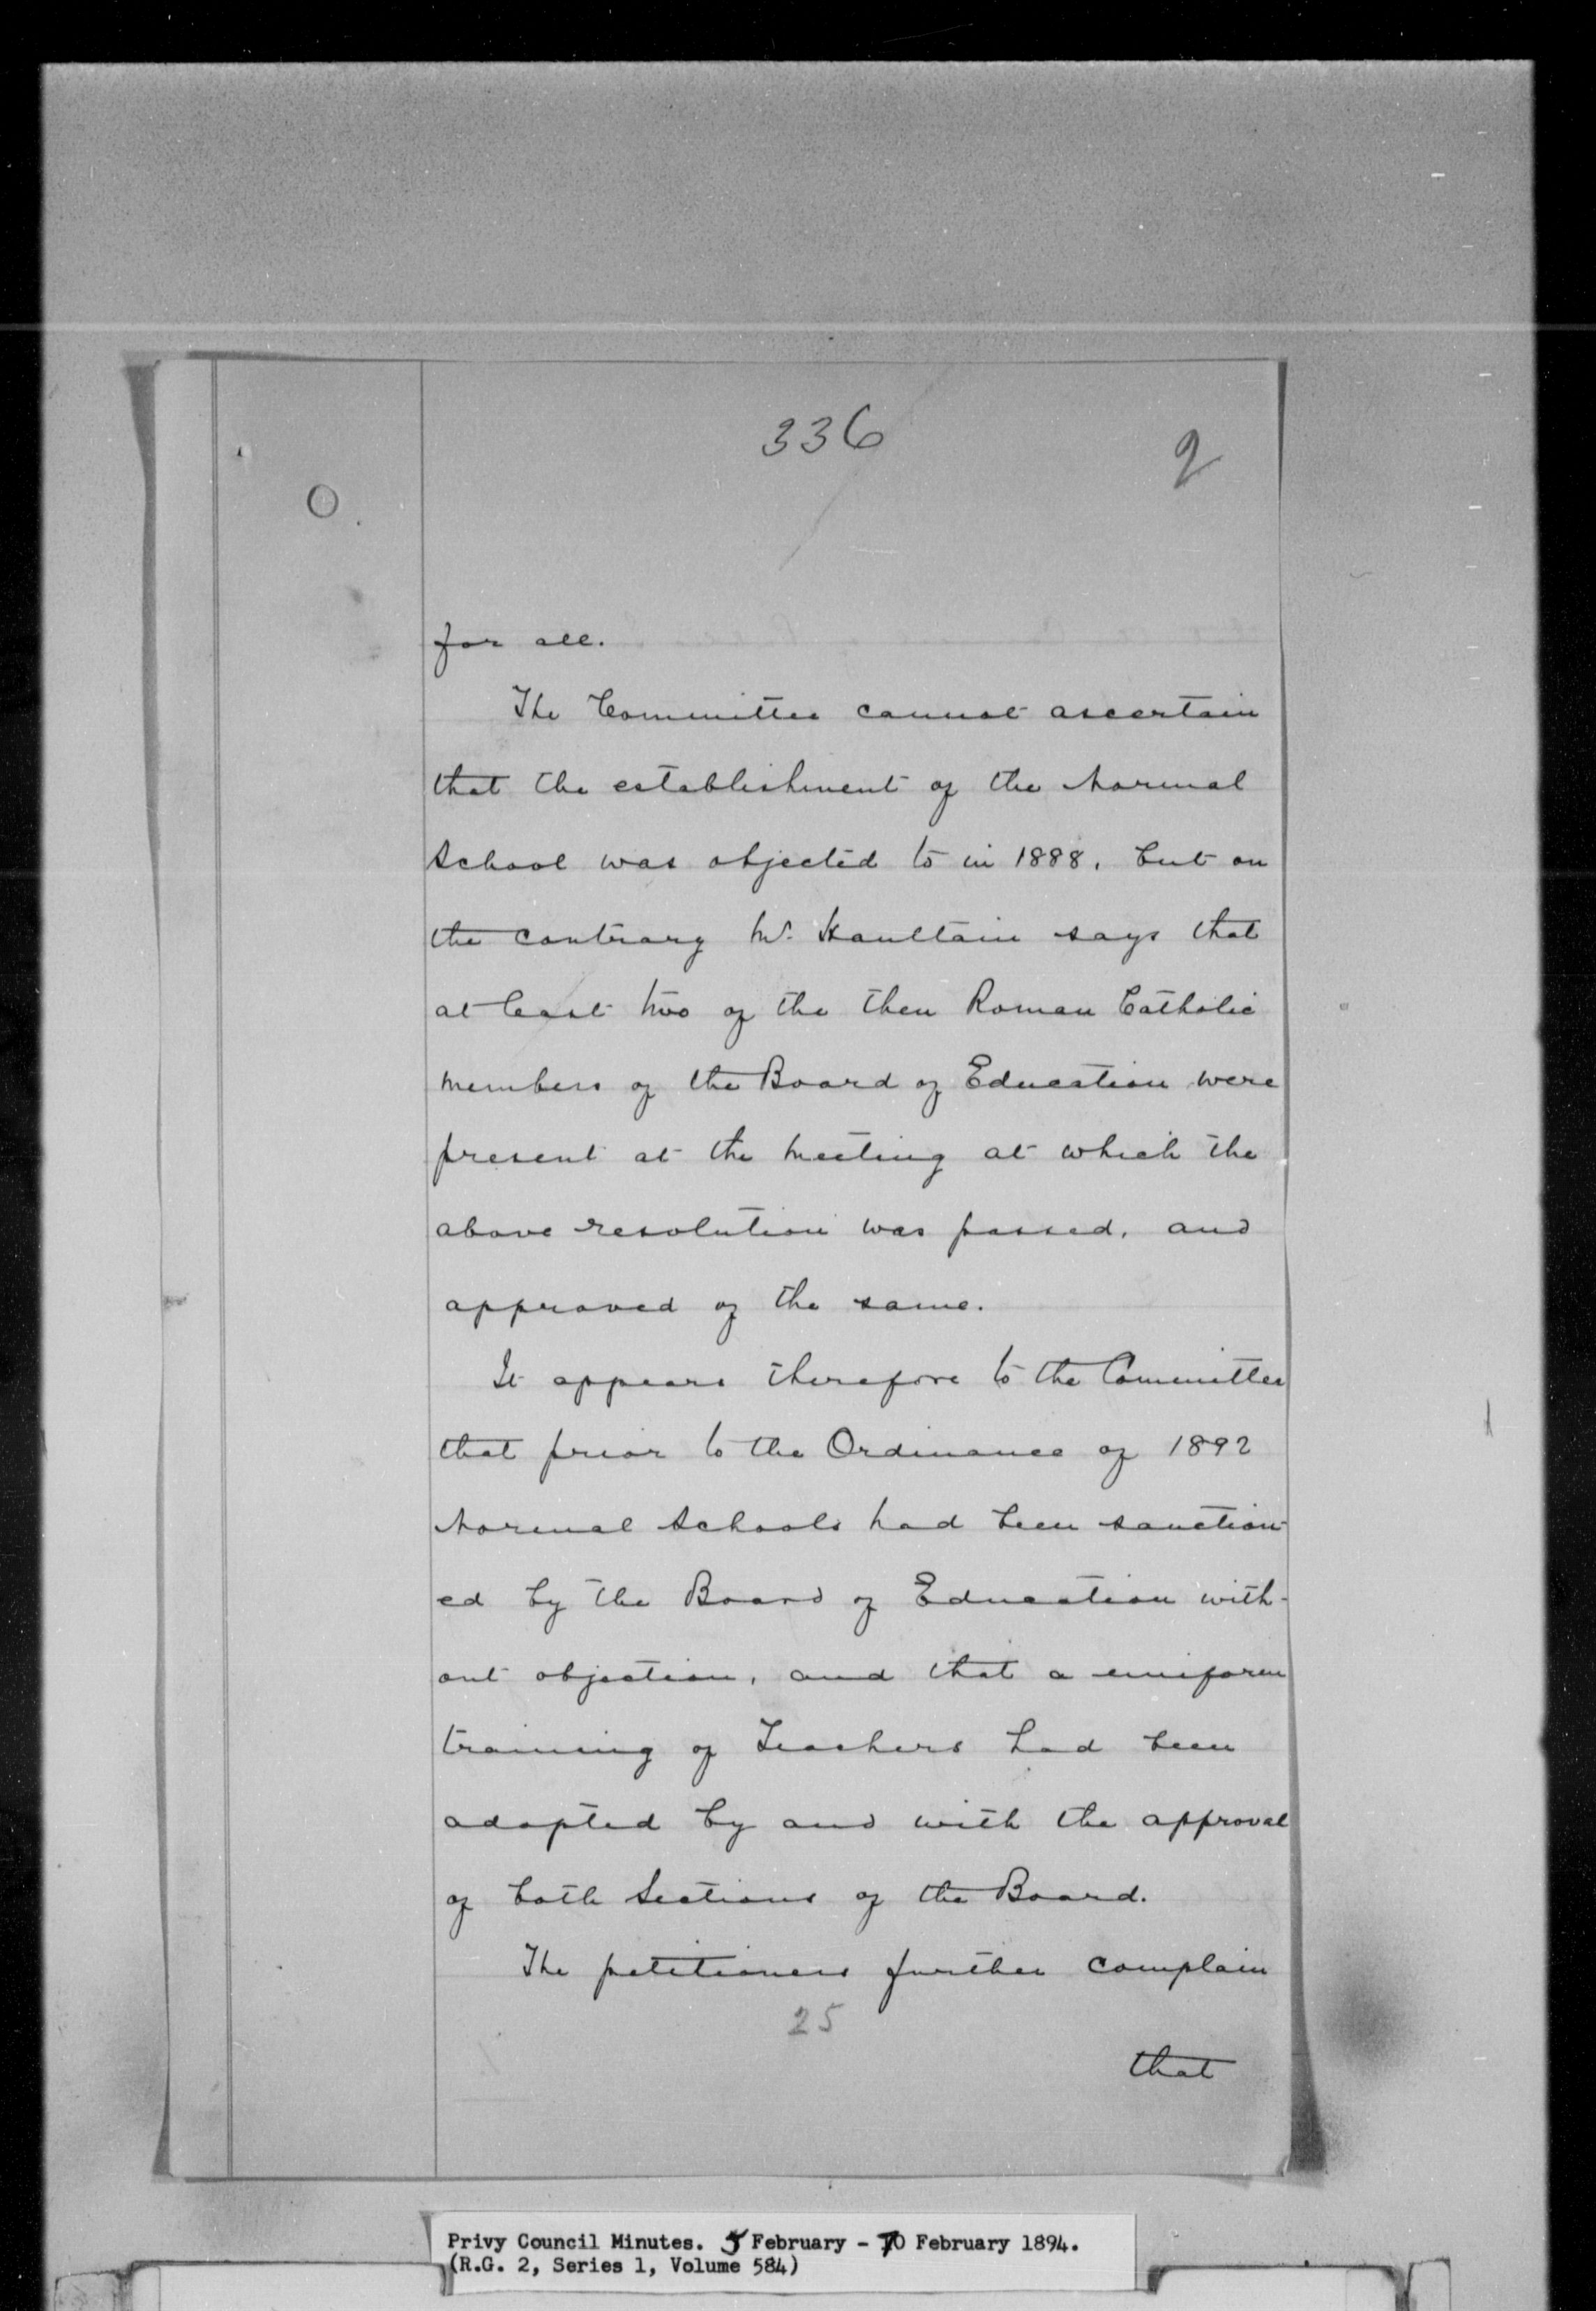 336
2
for all.
The Committee cannot ascertain
that the establishment of the Normal
School was objected to in 1888, but on
the contrary Mr. Haultain says that
at least two of the then Roman Catholic
members of the Board of Education were
present at the meeting at which the
above resolution was passed, and
approved of the same.
It appears therefore to the Committee
that prior to the Ordinance of 1892
Normal Schools had been sanction-
ed by the Board of Education with-
out objection, and that a uniform
training of Teachers had been
adopted by and with the approval
of both Sections of the Board.
The petitioners further complain
25
that
Privy Council Minutes. 5 February - 10 February 1894.
(R.G. 2, Series 1, Volume 584)